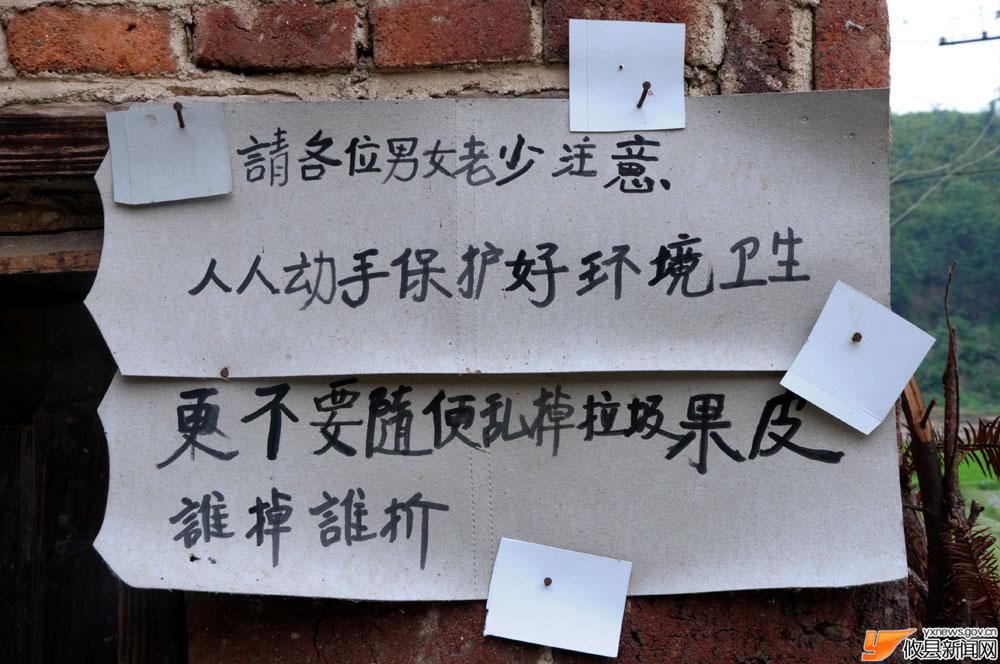 請各位男女老少注意
人人动手保护好环境卫生
更不要隨便乱掉垃圾果皮
誰掉誰折
yxnews.gov.cn
攸县新闻网